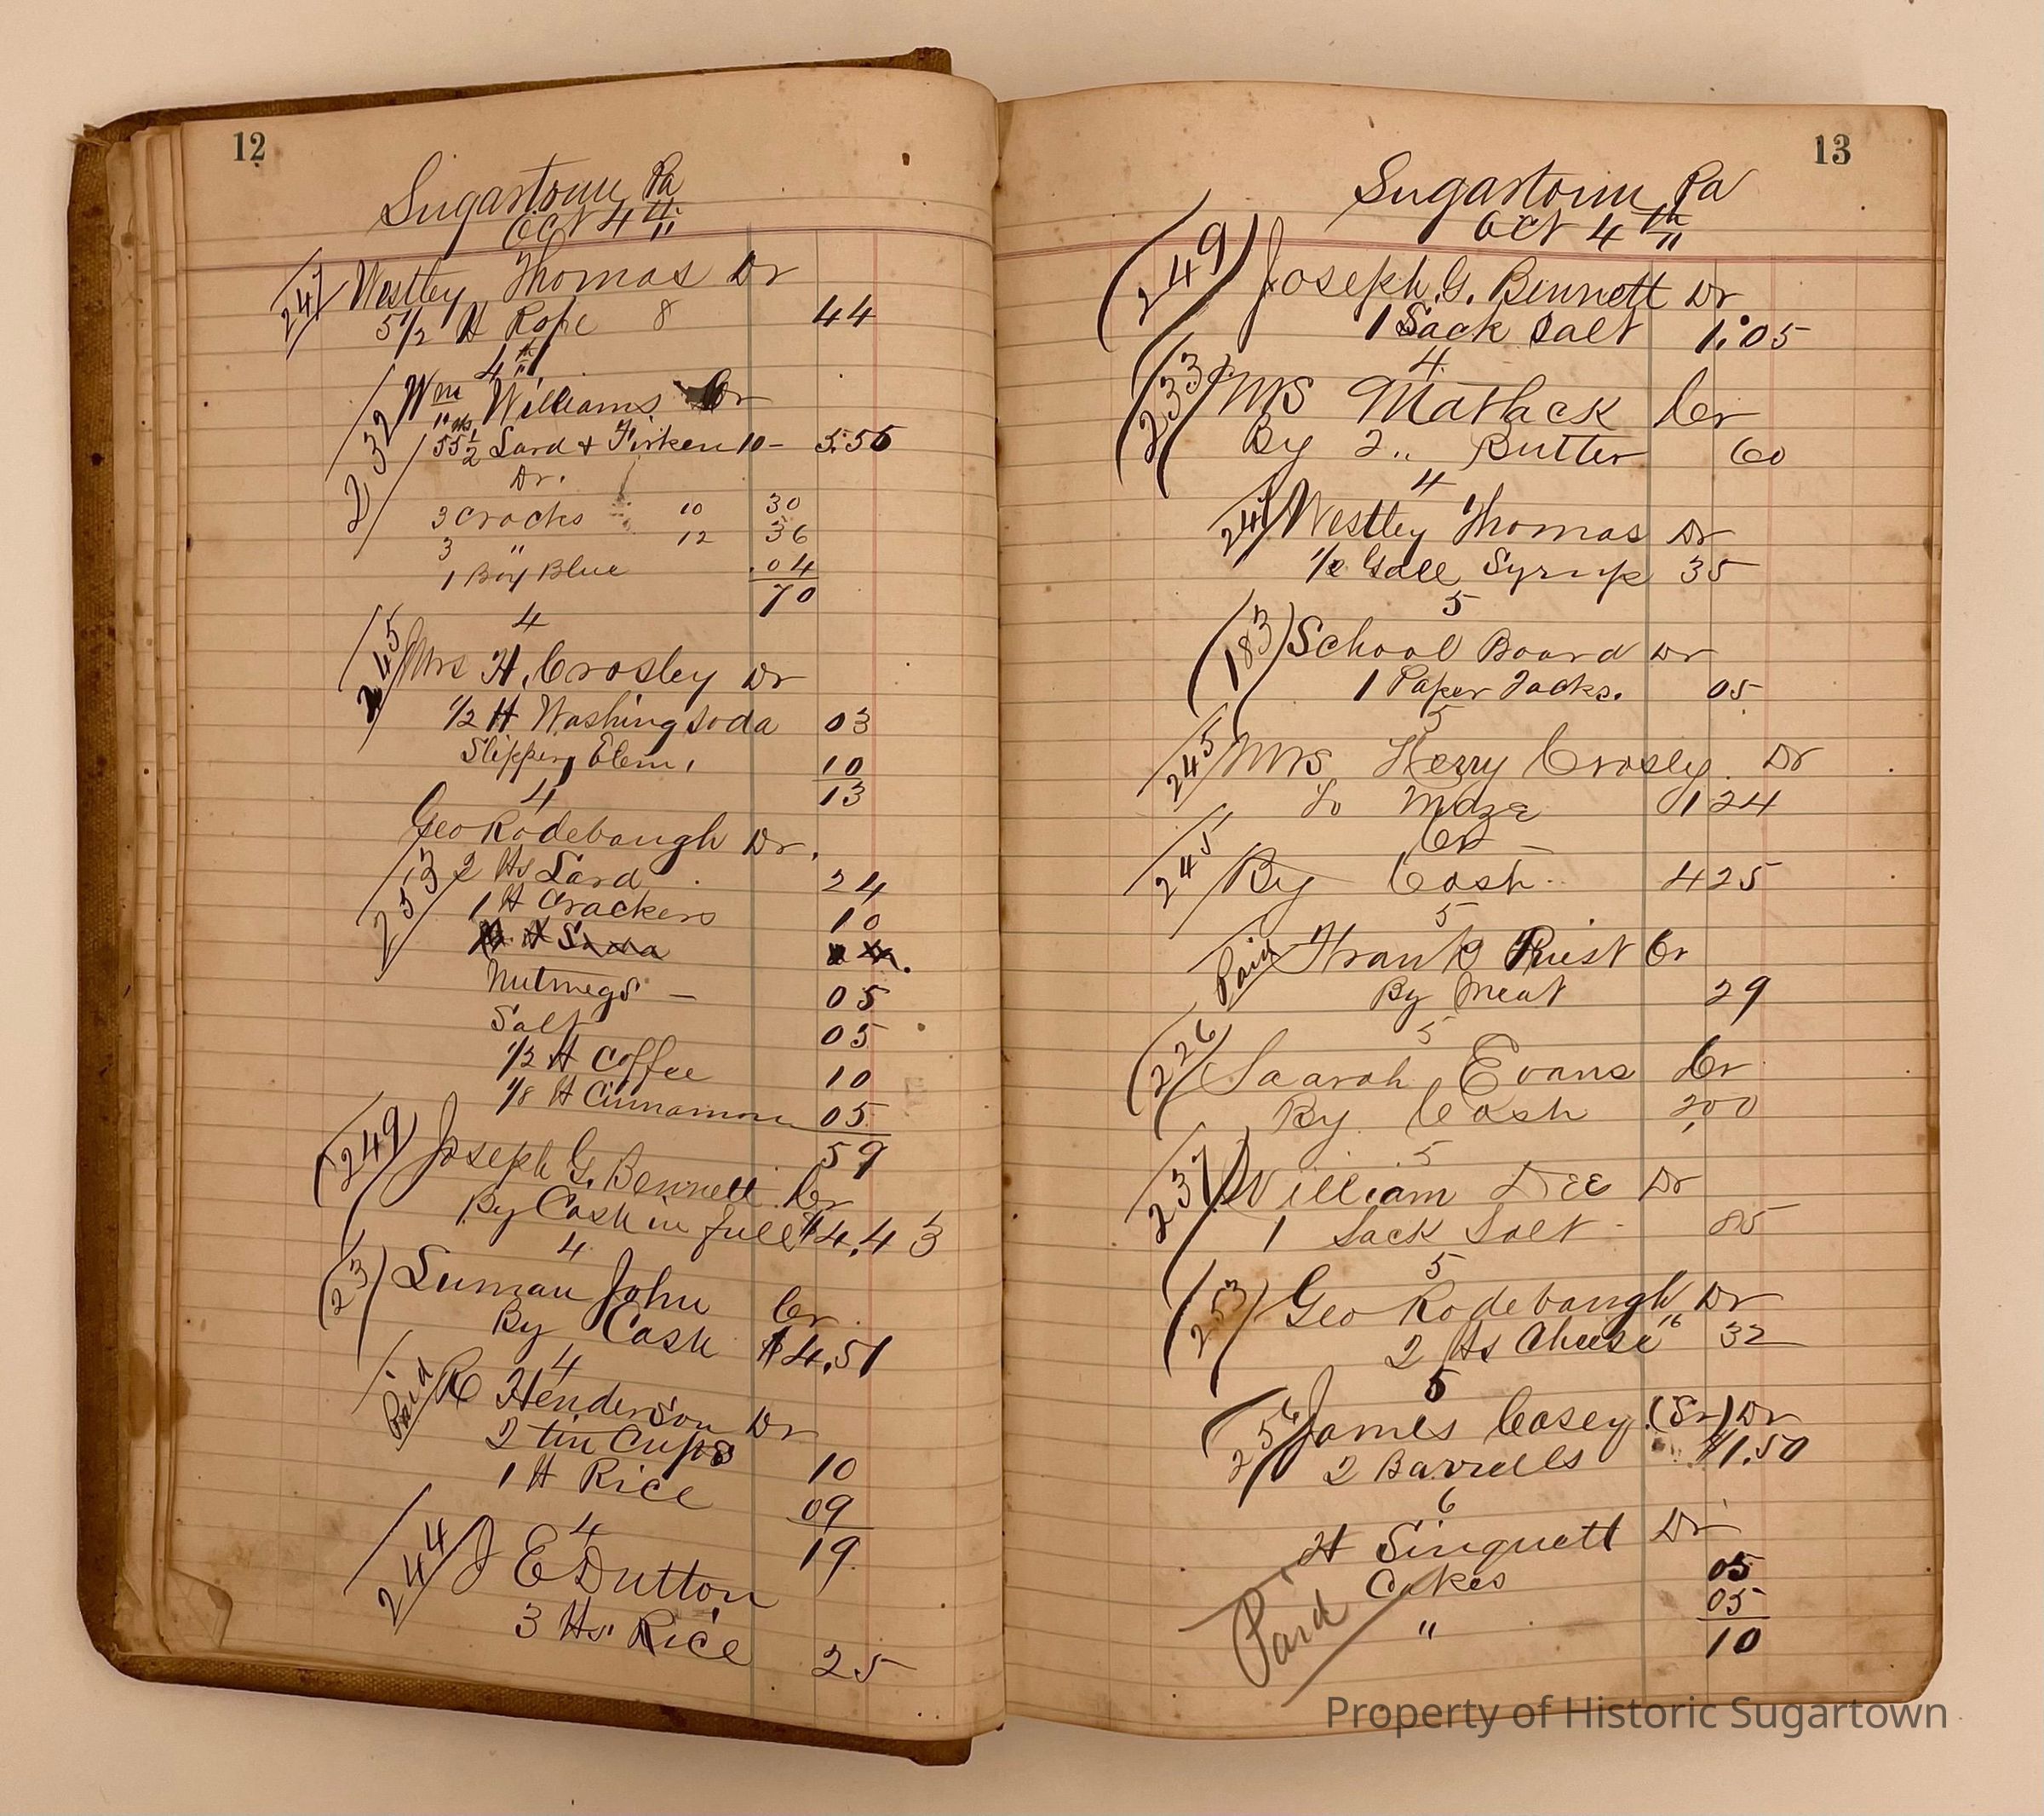 12
Sugartown Pa
Oct 4th
241 Westley Thomas Dr
5 1/2 ℔ Rope 8 44
4th
232 Wm Williams Cr
55 1/2 Lard & Firken 10 - 5.55
Dr.
3 Crocks 10 30
3 " 12 36
1 Box Blue .04
70
4
245 Mrs H. Crosley Dr
1/2 ℔ Washing Soda 03
Slippery Elem. 10
13
4
Geo Rodebaugh Dr.
253 2 ℔s Lard 24
1 ℔ Crackers 10
Soda
Nutmegs - 05
Salt 05
1/2 ℔ Coffee 10
1/8 ℔ Cinnamon 05
59
(249) Joseph G. Bennett Cr
By Cash in full $4.43
4
(23) Luman John Cr
By Cash $4.51
4
Paid R Henderson Dr
2 tin Cups 10
1 ℔ Rice 09
19
4
244 J E Dutton
3 ℔s Rice 25
13
Sugartown Pa
Oct 4th
(249) Joseph. G. Bennett Dr
1 Sack Salt 1.05
4
(233) Mrs Matlack Cr
By 2 " Butter 60
4
241 Westley Thomas Dr
1/2 Gall Syrup 35
5
(183) School Board Dr
1 Paper Tacks. 05
5
245 Mrs Henry Crosley. Dr
To Mdze 124
Cr
245 By Cash. 425
5
Paid Frank Rust Cr
By Meat 29
5
(226) Saarah Evans Cr
By Cash 200
5
237 William Dee Dr
1 Sack Salt 85
5
(253) Geo Rodebaugh Dr
2 ℔s Cheese 16 32
5
256 James Casey (Sr) Dr
2 Barrells $1.50
6
H Singuett Dr
Cakes 05
" 05
10
Paid
Property of Historic Sugartown